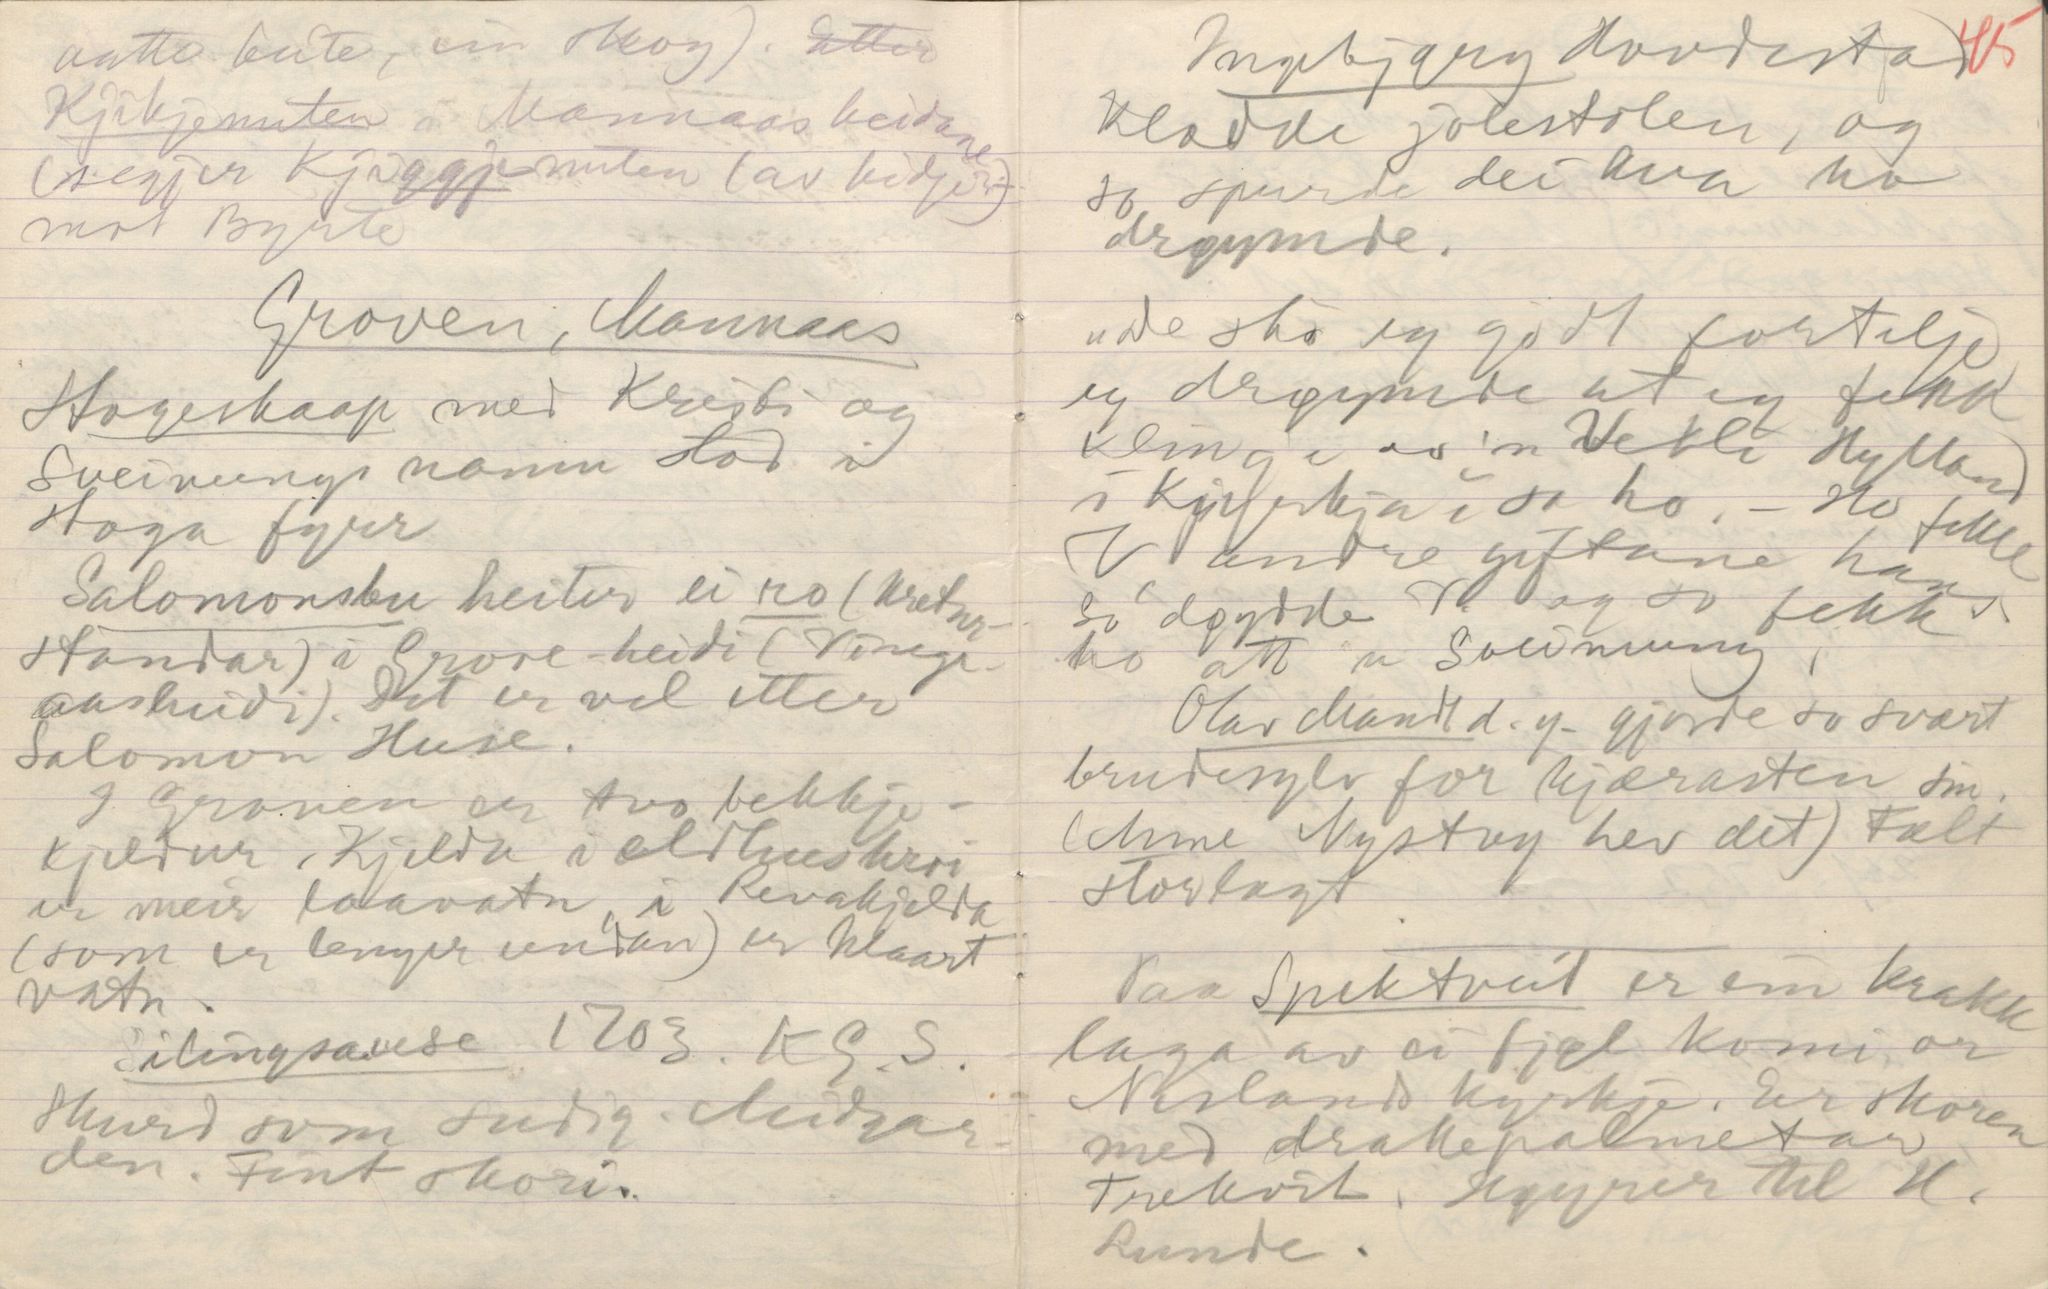 aatte beite, ein skog). Etter
Kjikjenuten i Mannaasheidane
(segjer Kjiggjenuten (av kidjer)
mot Byrte
Groven, Mannaas
Stogeskaap med Kristi og
Sveinungs namn stod i
stoga fyrr
Salomonsbu heiter ei ro (kretur-
standar) i Grove-heidi (
aasheidi). Det er vel etter
Salomon Huse.
I Groven er tvo bekkje-
kjeldur. Kjelda i eldhuskroi
er meir laavatn, i Revakjelda
(som er lenger undan) er klaart
vatn.
Silingsause 1703. K G. S.
Skurd som sudig. Midgar-
den. Fint skori.
45
Ingebjørg Hovdestad
kladde jolestolen, og
so spurde dei kva ho
drøymde.
ude sko eg godt fortelje
eg drøymde at eg fekk
klinge av 'n Vetli Hylland
i Kyrkja i sa ho. – Ho fekk
V andre giftane hans
So døydde V. og so fekk
ho att 'n Sveinung.
Olav Mandt d. y. gjorde so svært
brudesylv for kjærasten sin.
(Anne Nystog hev det) Fælt
storlagt
Paa Spektveit er ein krakk
laga av ei fjøl komi or
Nesland kyrkje. Er skoren
med drakepalmetar
Trekvit. Høyrer til H.
Runde.